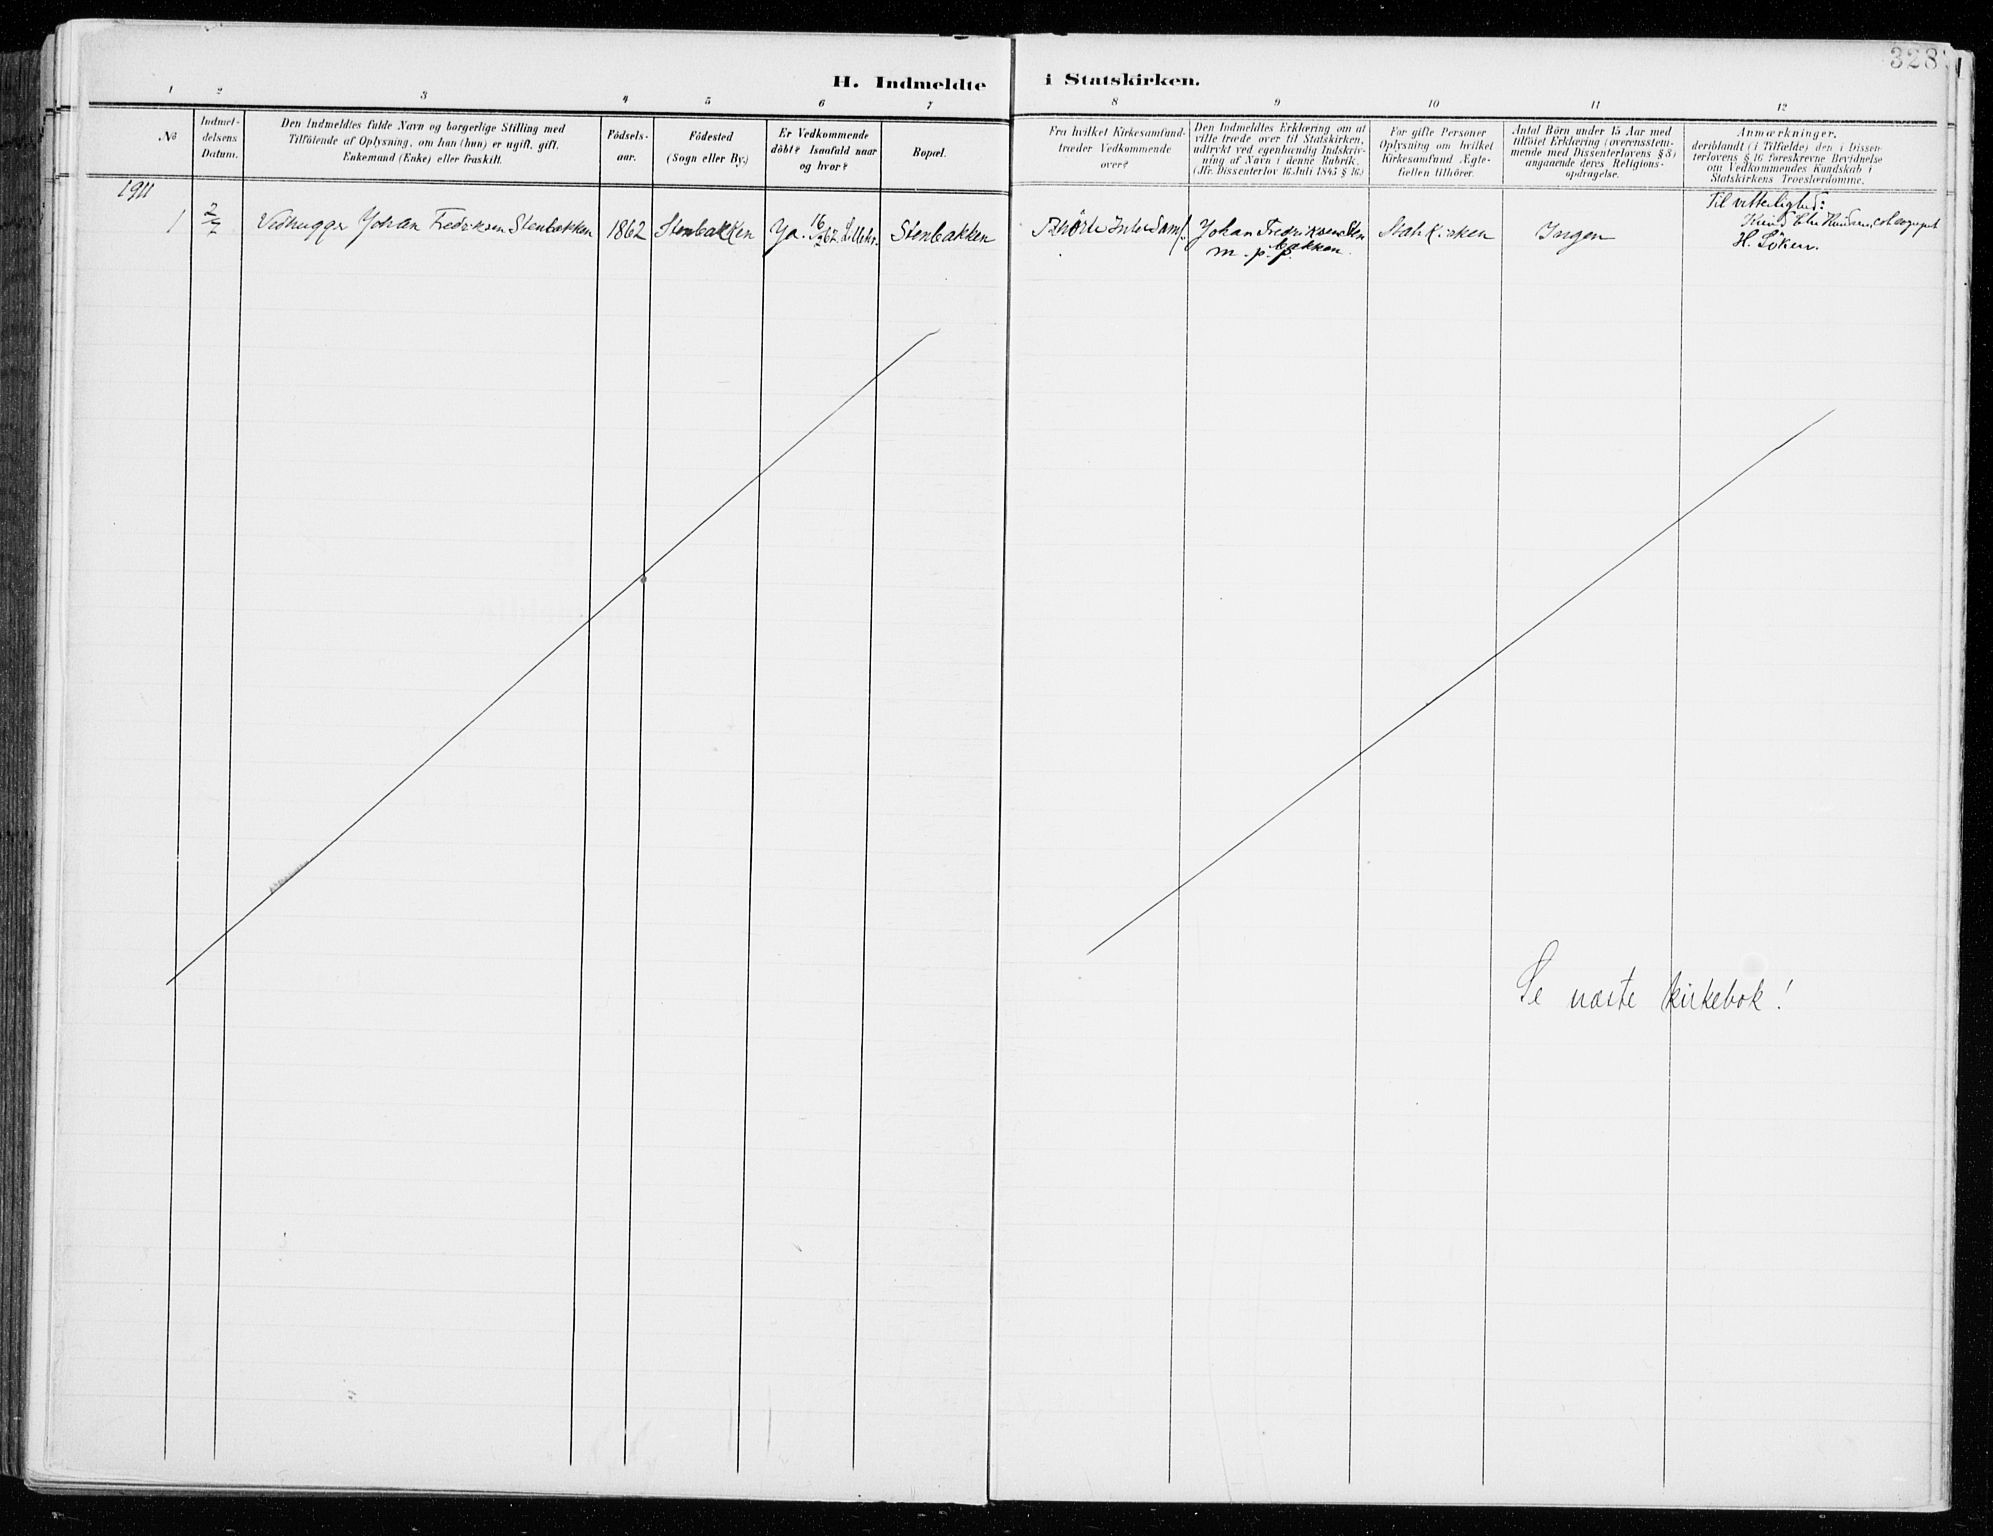 328
H. Indmeldte i Statskirken.
1 2 3 4 5 6 7 8 9 10 11 12
No
Indmel-
delsens
Datum.
Den Indmeldtes fulde Navn og borgerlige Stilling med
Tilföiende af Oplysning, om han (hun) er ugift, gift,
Enkemand (Enke) eller fraskilt.
Födsels-
aar.
Födested
(Sogn eller By.)
Er Vedkommende
döbt? Isaafald naar
og hvor?
Bopæl.
Fra hvilket Kirkesamfund
træder Vedkommende
over?
Den Indmeldtes Erklæring om at
ville træde over til Statskirken,
udtrykt ved egenhændig Indskriv-
ning af Navn i denne Rubrik.
(Jfr. Dissenterlov 16 Juli 1845 § 16.)
For gifte Personer
Oplysning om hvilket
Kirkesamfund Ægte-
fællen tilhörer.
Antal Börn under 15 Aar med
tilföiet Erklæring (overensstem-
mende med Dissenterlovens § 8)
angaaende deres Religions-
opdragelse.
Anmærkninger,
deriblandt (i Tilfælde) den i Dissen-
terlovens § 16 foreskrevne Bevidnelse
om Vedkommendes Kundskab i
Statskirkens Troeslærdomme.
1911
1
2/7
Vedhugger Johan Fredriksen Stenbakken
1862
Stenbakken
Ja. 16/2 62
Stenbakken
Johan Fredriksen Sten
bakken
m. p. p.
Statskirken
Ingen
Til vitterlighed:
H. Löken.
Se næste kirkebok!